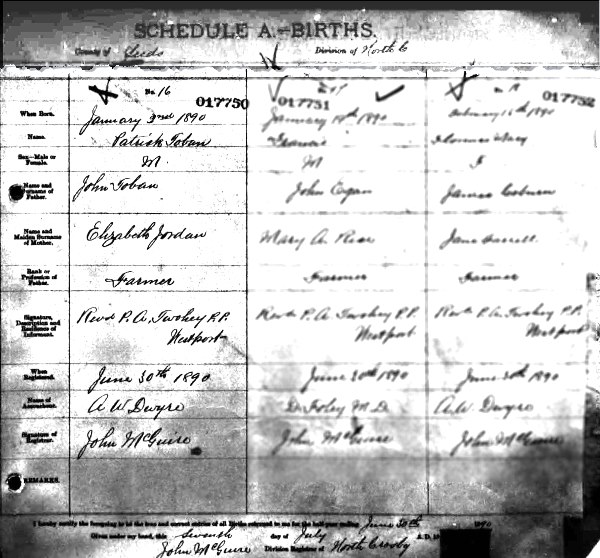 SCHEDULE A.—BIRTHS.
County of Leeds Division of North C
No. 16
017750 017751 017752
When Born. January 3rd 1890 January 1890 1890
Name. Patrick Toban Francis Florence Mary
Sex—Male or Female. M M F
Name and Surname of Father. John Toban John Egan James Coburn
Name and Maiden Surname of Mother. Elizabeth Jordan Mary A. Jane
Rank or Profession of Father. Farmer Farmer Farmer
Signature, Description and Residence of Informant. Revd P. A. Twohey P.P. Westport Revd P. A. Twohey P.P. Westport Revd P. A. Twohey P.P. Westport
When Registered. June 30th 1890 June 30th 1890 June 30th 1890
Name of Accoucheur. A W Dwyre D. Foley M.D. A. W. Dwyre
Signature of Registrar. John McGuire John McGuire John McGuire
REMARKS.
I hereby certify the foregoing to be the true and correct entries of all Births returned to me for the half-year ending June 30th 1890
Given under my hand, this seventh day of July A.D. 18
John McGuire Division Registrar of North Crosby